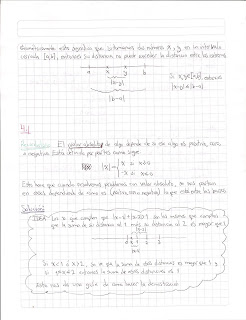 Geométricamente esto significa que, si tomamos dos números x, y en un intervalo
cerrado [a,b], entonces su distancia no puede exceder la distancia entre los extremos
a x y b
Si x,y∈[a,b] entonces
|x-y|
|x-y|≤|b-a|
|b-a|
El valor absoluto de algo depende de si ese algo es positivo, cero
o negativo. Está definido por partes como sigue
|x| = { x x≥0
-x x<0
Esto hace que cuando resolvemos problemas con valor absoluto, se nos partan
en casos dependiendo de cómo es (positivo, cero o negativo) lo que está entre las barras.
Solución:
IDEA: Los x que cumplen que |x-1|+|x-2|>1 son los mismos que cumplen
que la suma de su distancia al 1 más su distancia al 2 es mayor que 1
Si x<1 ó x>2, se ve que la suma de esas distancias es mayor que 1 y
si 1≤x≤2 entonces la suma de esas distancias es 1
Esto nos da una guía de cómo hacer la demostración